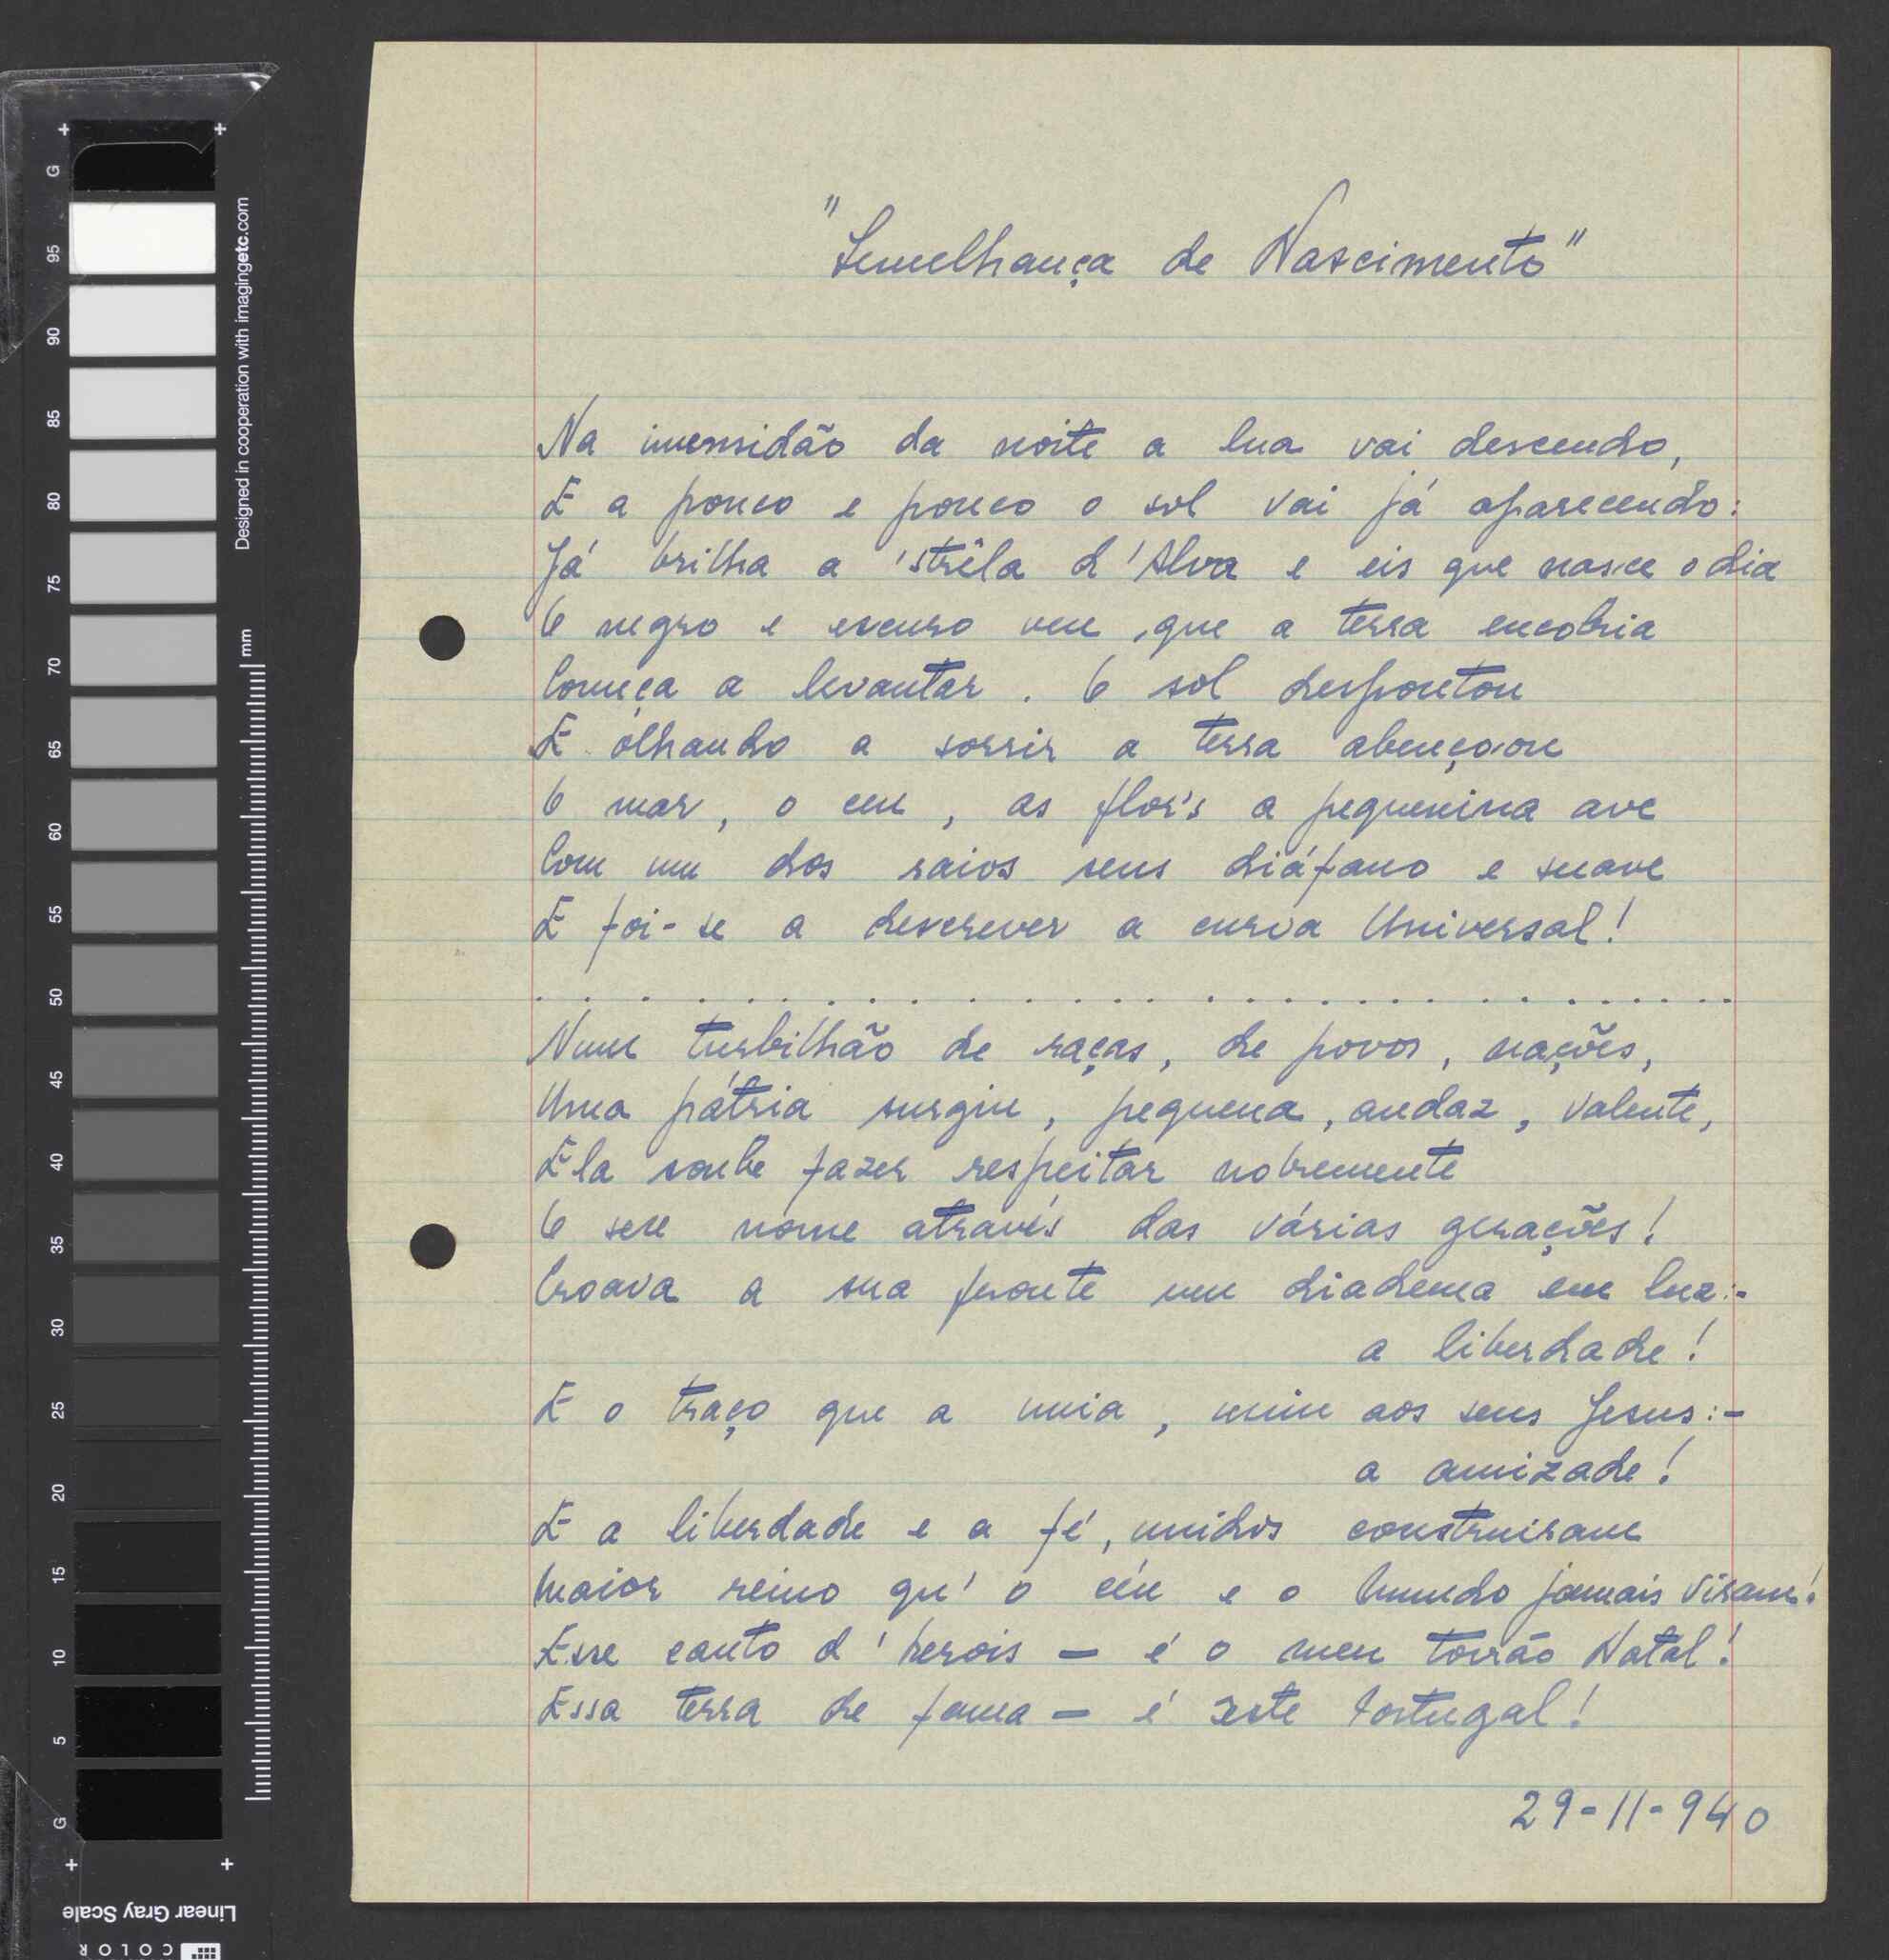 G
95
90
85
80
75
70
65
60
55
50
45
40
35
30
25
20
15
10
5
G
Designed in cooperation with imagingetc.com
mm
Linear Gray Scale
COLOR
"Semelhança de Nascimento"
Na imensidão da noite a lua vai descendo,
E a pouco e pouco o sol vai já aparecendo:
Já brilha a 'strêla d'Alva e eis que nasce o dia
O negro e escuro veu, que a terra encobria
Começa a levantar. O sol despontou
E olhando a sorrir a terra abençoou
O mar, o ceu, as flor's a pequenina ave
Com um dos raios seus diáfano e suave
E foi-se a descrever a curva Universal!
. . . . . . . . . . . . . . . . . . . . . . . . . .
Num turbilhão de raças, de povos, nações,
Uma pátria surgiu, pequena, audaz, valente,
Ela soube fazer respeitar nobremente
O seu nome através das várias gerações!
Croava a sua fronte um diadema em luz:-
a liberdade!
E o traço que a unia, uniu aos seus Jesus:-
a amizade!
E a liberdade e a fé, unidos construiram
Maior reino qu'o céu e o Mundo jamais viram!
Esse canto d'herois - é o meu torrão Natal!
Essa terra de fama - é este Portugal!
29-11-940